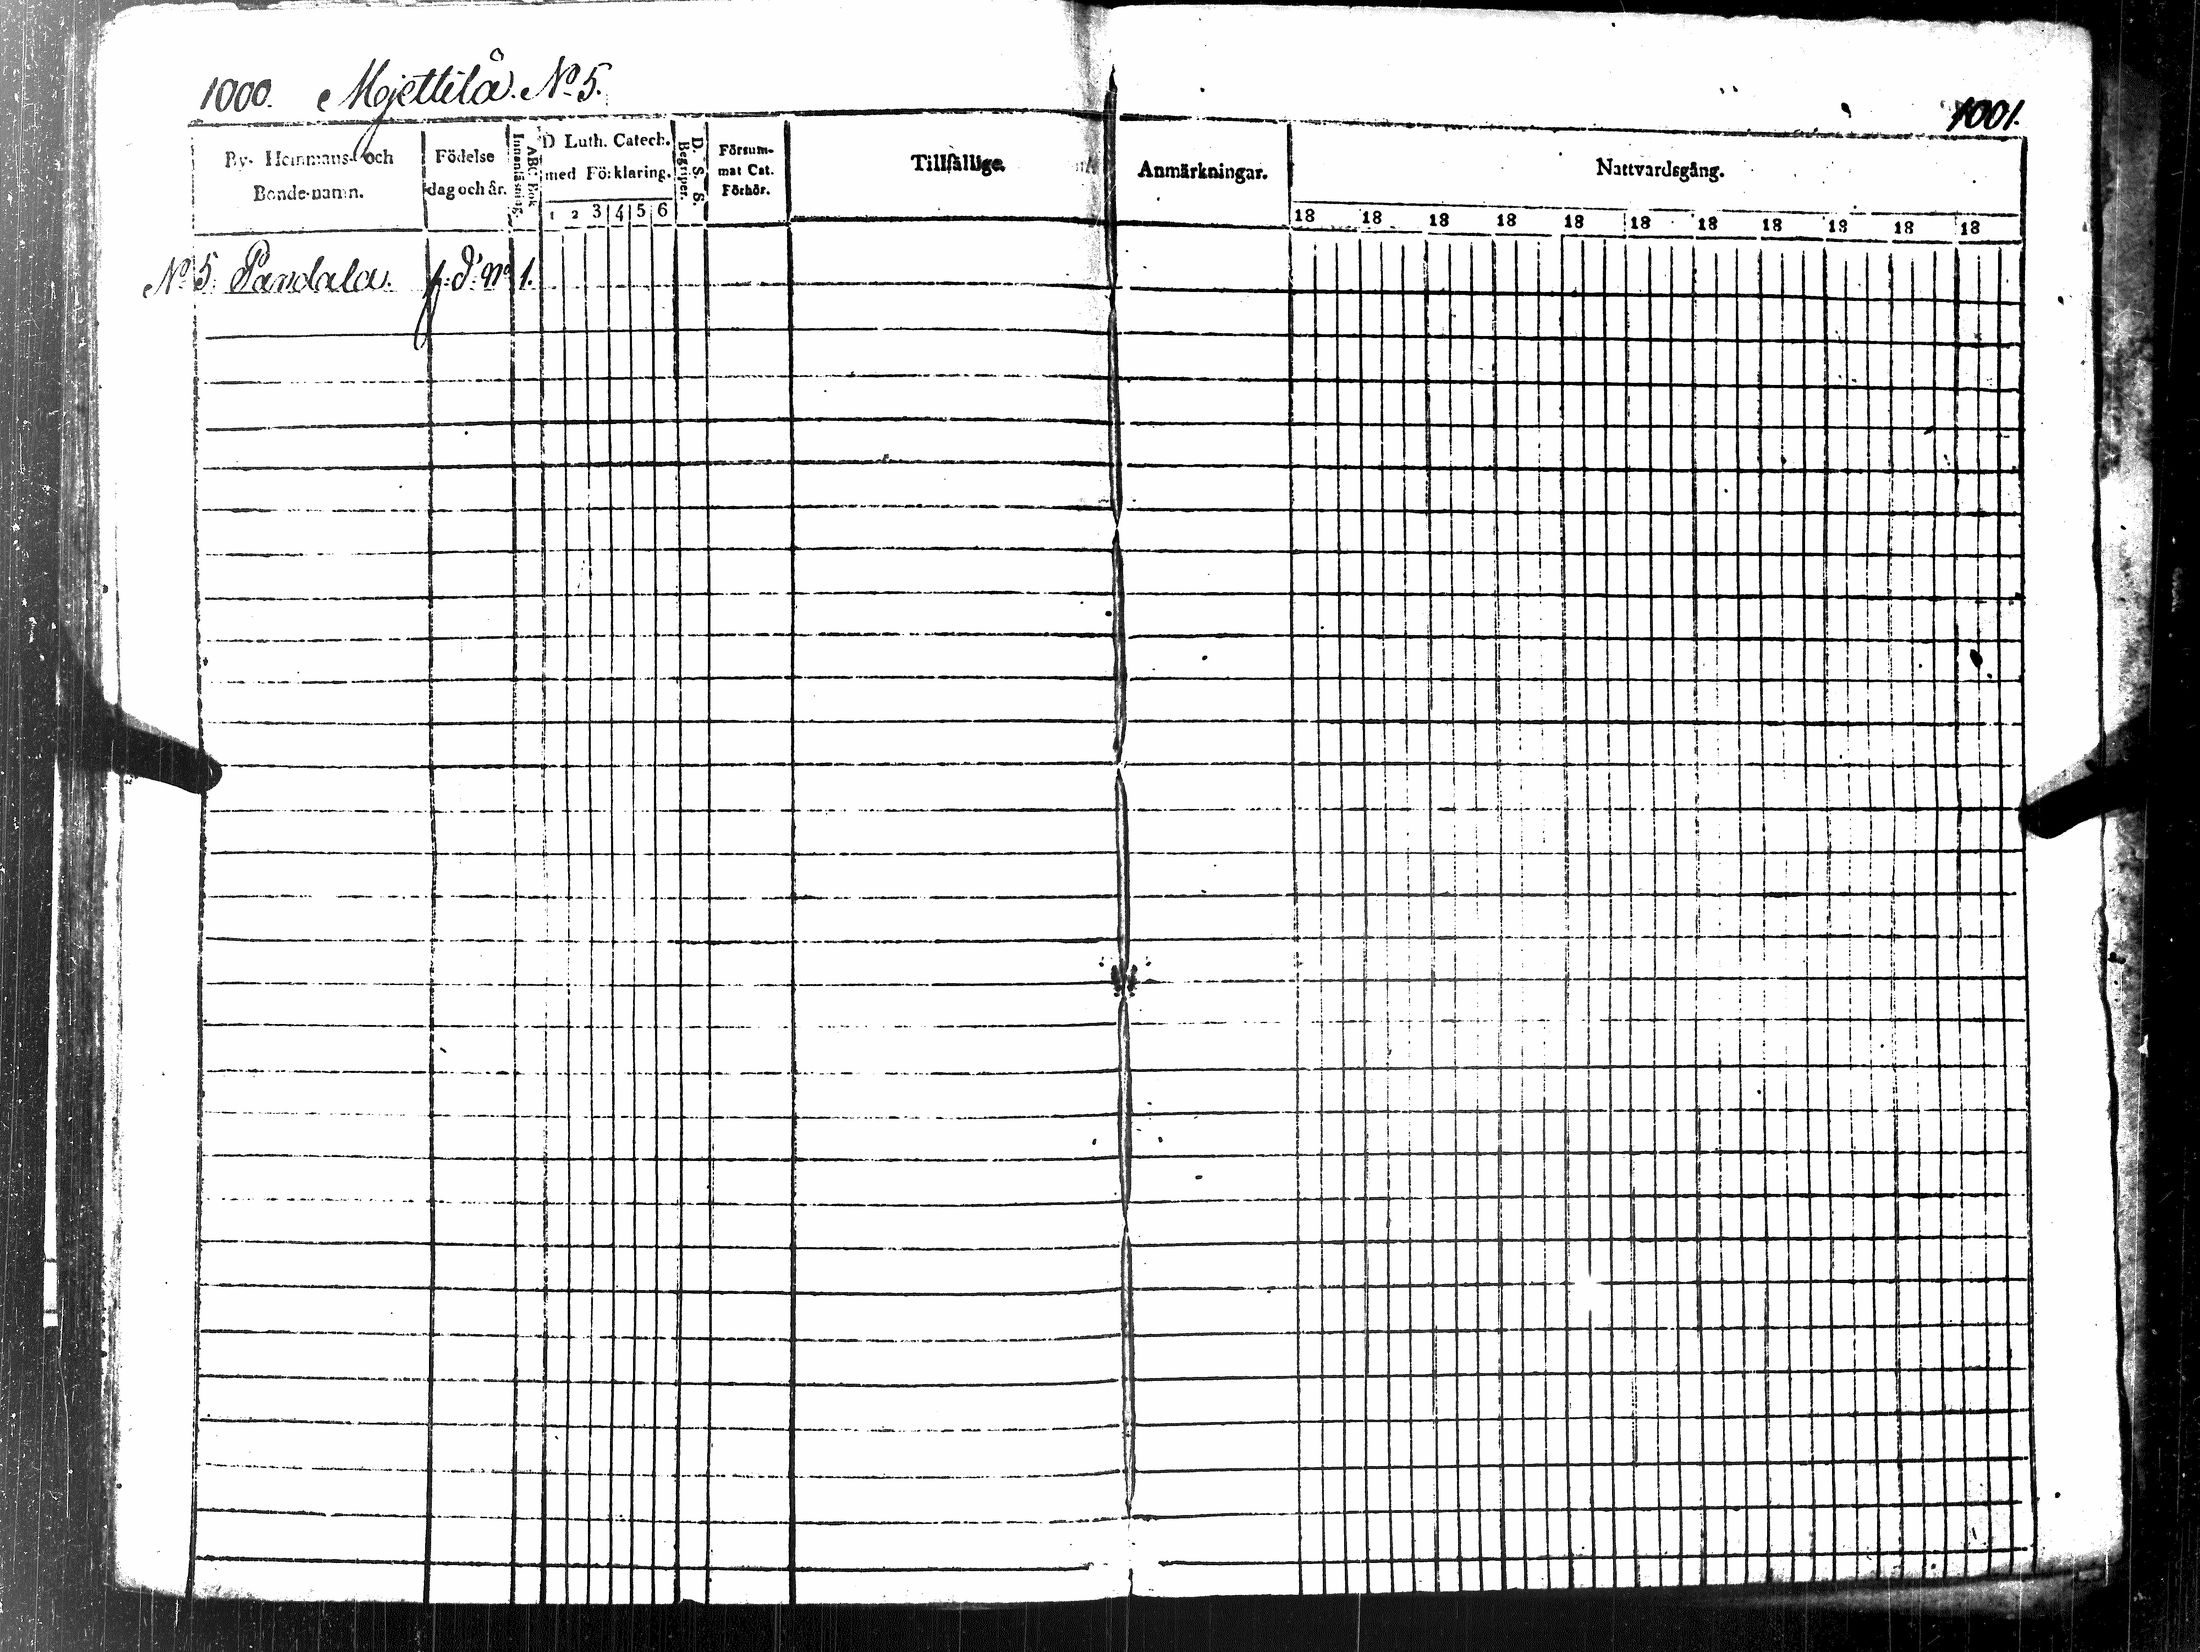 1000. Mojettilå. No 5.
1001.
By- Hemmans- och Bonde-namn.
Födelse dag och år.
Innanläsning.
ABC Bok
D Luth. Catech. med Förklaring.
1 2 3 4 5 6
D. S. S. Begriper.
Försummat Cat. Förhör.
Tillfällige
Anmärkningar.
Nattvardsgång.
18 18 18 18 18 18 18 18 18 18 18
No 5 Pandala. f. d. No 1.